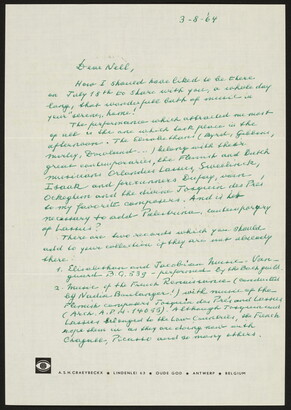 3-8-64
Dear Nell,
How I should have liked to be there
on July 18th to share with you, a whole day
long, that wonderful bath of music in
your serene home!
The performance which attracted me most
of all is the one which took place in the
afternoon. The Elizabethans (Byrd, Gibbons,
Morley, Dowland...) belong with their
great contemporaries, the Flemish and Dutch
musicians Orlandus Lassus, Sweelinck,
Isaak and forerunners Dufay, van
Ockeghem and the divine Josquin des Prés
to my favorite composers. And is it
necessary to add Palestrina, contemporary
of Lassus?
There are two records which you should
add to your collection if they are not already
there:
1. Elizabethan and Jacobian Music. Van-
guard B.G. 539 - performed by
2. Music of the French Renaissance (conducted
by Nadia Boulanger!) with music of the
Flemish composers Josquin des Prés and Lassus
(Arch. A.P.M. 14035). Although Josquin and
Lassus belonged to the Low Countries, the French
rope them in as they are doing now with
Chagall, Picasso and so many others.
A.S.H. CRAEYBECKX LINDENLEI 53 OUDE GOD ANTWERP BELGIUM